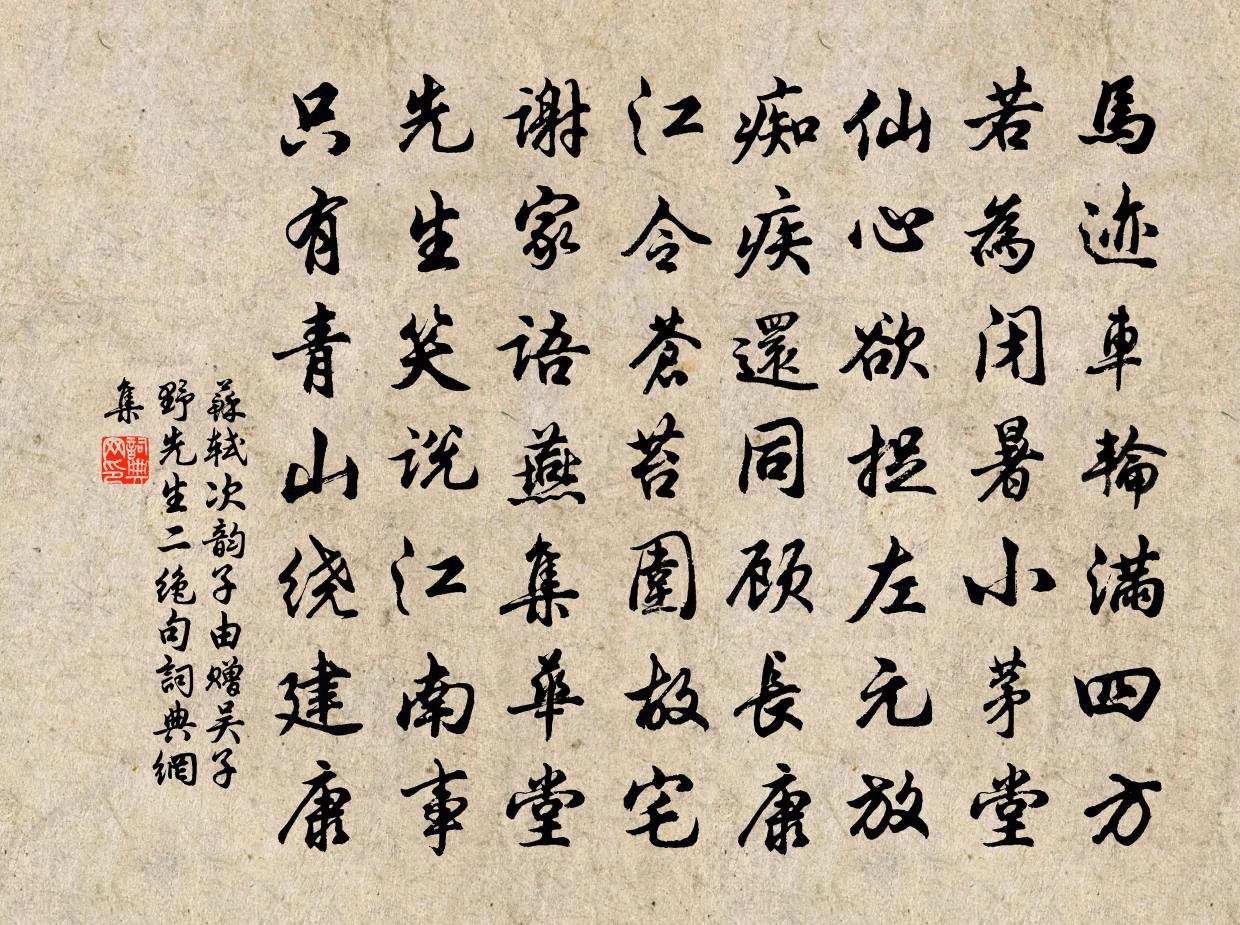 馬迹車輪滿四方
若為閉暑小茅堂
仙心欲捉左元放
痴疾還同顾長康
江令蒼苔圍故宅
謝家語燕集華堂
先生笑説江南事
只有青山绕建康
蘇轼次韵子由赠吴子
野先生二绝句詞典網
集
詞典網印